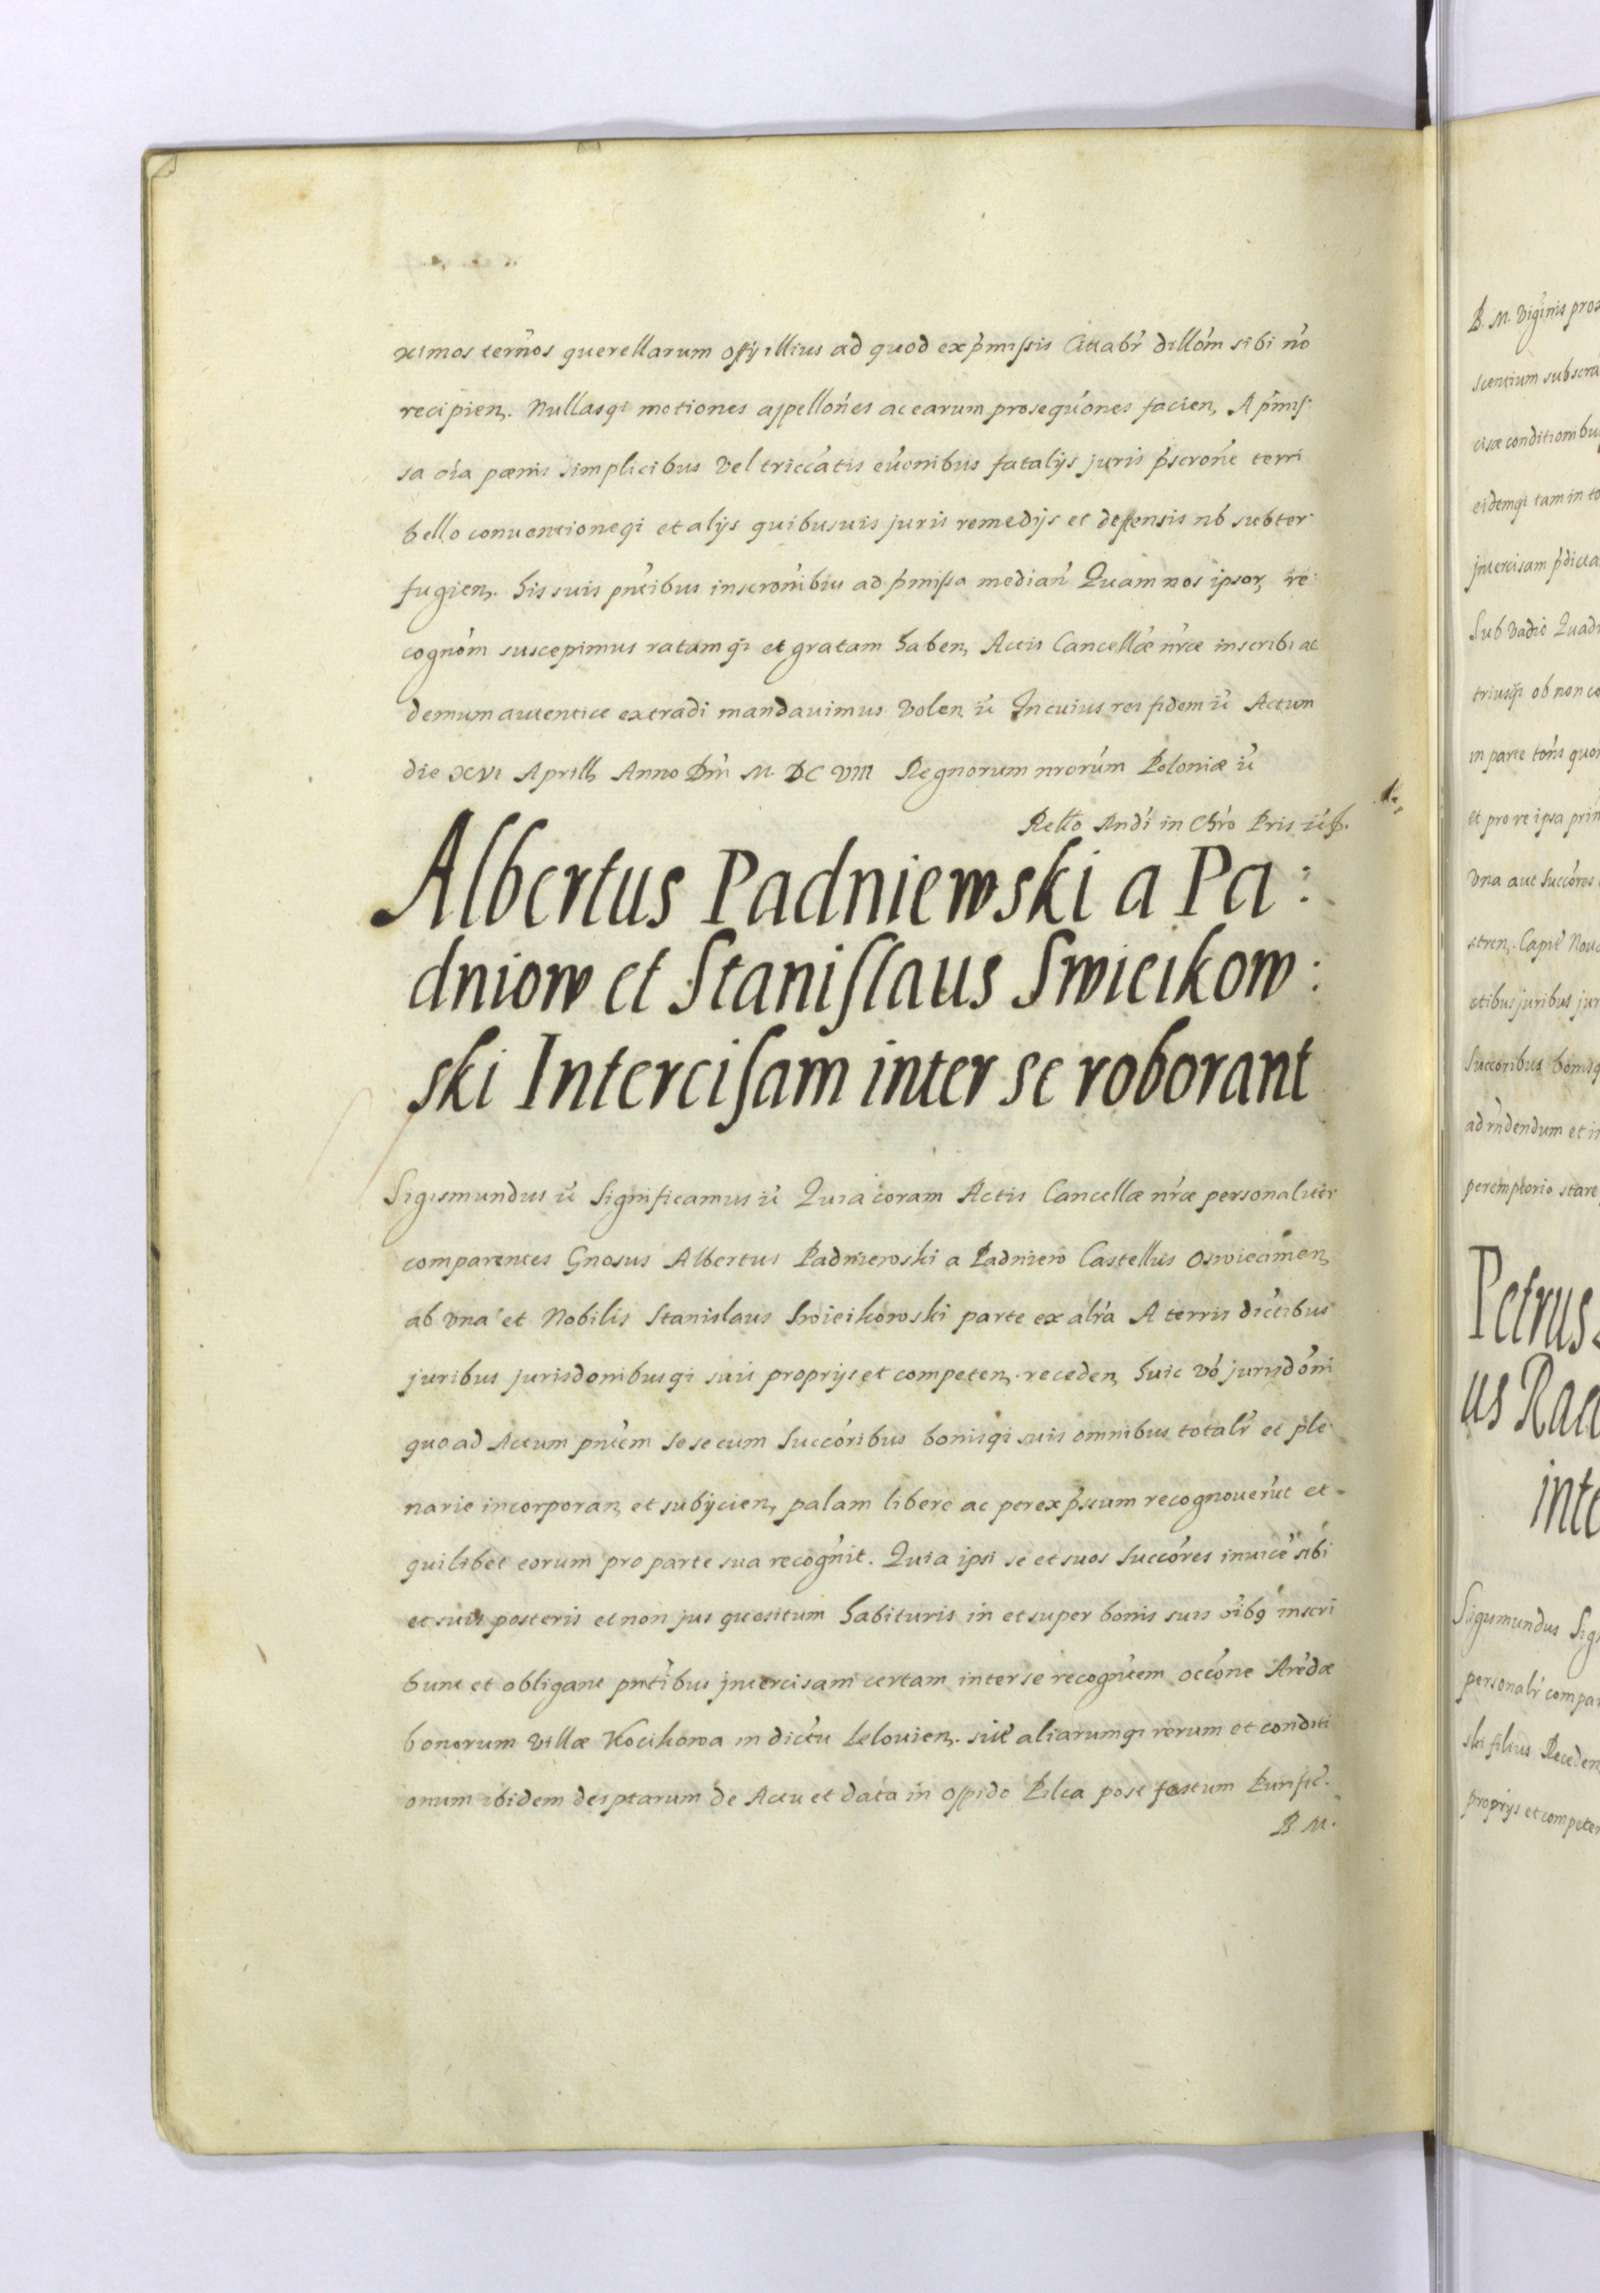 ximos terños querellarum offÿ illius ad quod ex p̃missis Cittabr̃ dillõm sibi nõ
recipien. Nullasqꝫ motiones appelloñes ac earum prosequões facien, A p̃mis:
sa oĩa pœnis simplicibus Vel triccatis evẽnibus fatalijs juris p̃scroñe terri
bello conventioneqꝫ et alijs quibusvis juris remedijs et deffensis nõ subter:
fugien. his suis pñtibus inscroñibus ad p̃missa median̄ Quam nos ipsor, re:
cogñom suscepimus ratamqꝫ et gratam haben, Actis Cancellæ nr̃æ inscribi ac
demum autentice extradi mandavimus Volen, ĩc In cuius rei fidem ĩc Actum
die XVI Aprilis Anno Dñi M. DC VIII Regnorum nrorum Poloniæ ĩc
Rel̃lo Rndi in Chr̃o Pris ĩc
Albertus Padniewski a Pa:
dniow et Stanislaus Swieikow:
ski Intercisam inter se roborant
Sigismundus ĩc Significamus ĩc Quia coram Actis Cancellæ nr̃æ personaliter
comparentes Gnosus Albertus Padniewski a Padniew Castellus Oswiecimen,
ab vna et Nobilis Stanislaus Swieikowski parte ex alr̃a A terris dictibus
juribus jurisdonibusqꝫ suis proprijs et competen. receden, huic võ jurisdõni
quo ad Actum pñtem sese cum Succõribus bonisqꝫ suis omnibus totalr̃ et ple:
narie incorporan, et subÿcien, palam libere ac per exp̃ssum recognoverũt et
quilibet eorum pro parte sua recogñit. Quia ipsi se et suos Succõres invicẽ sibi
et suis posteris et non jus quositum habituris in et super bonis suis oĩbꝯ inscri
bunt et obligant pñtibus jntercisam certam inter se recogñtem occõne Arẽdæ
bonorum villæ Kocikowa in dictu Lelovien. sitẽ aliarumqꝫ rerum et conditi
onum ibidem desptarum de Actu et data in Oppido Pilca post festum Purific̃.
B. M.
B. M. Virginis
scentium
conditionibus
eidemqꝫ tam in
jntercisam p̃dicta
Sub vadio
ob non
in parte
et pro re ipsa
Vna aut Succõres
stren. Capit̃
juribus
Succoribus
ad rñdendum et
peremptorio stare
Petrus
us
inte
Sigismundus
personalr̃
ski filius Receden
proprijs et competen